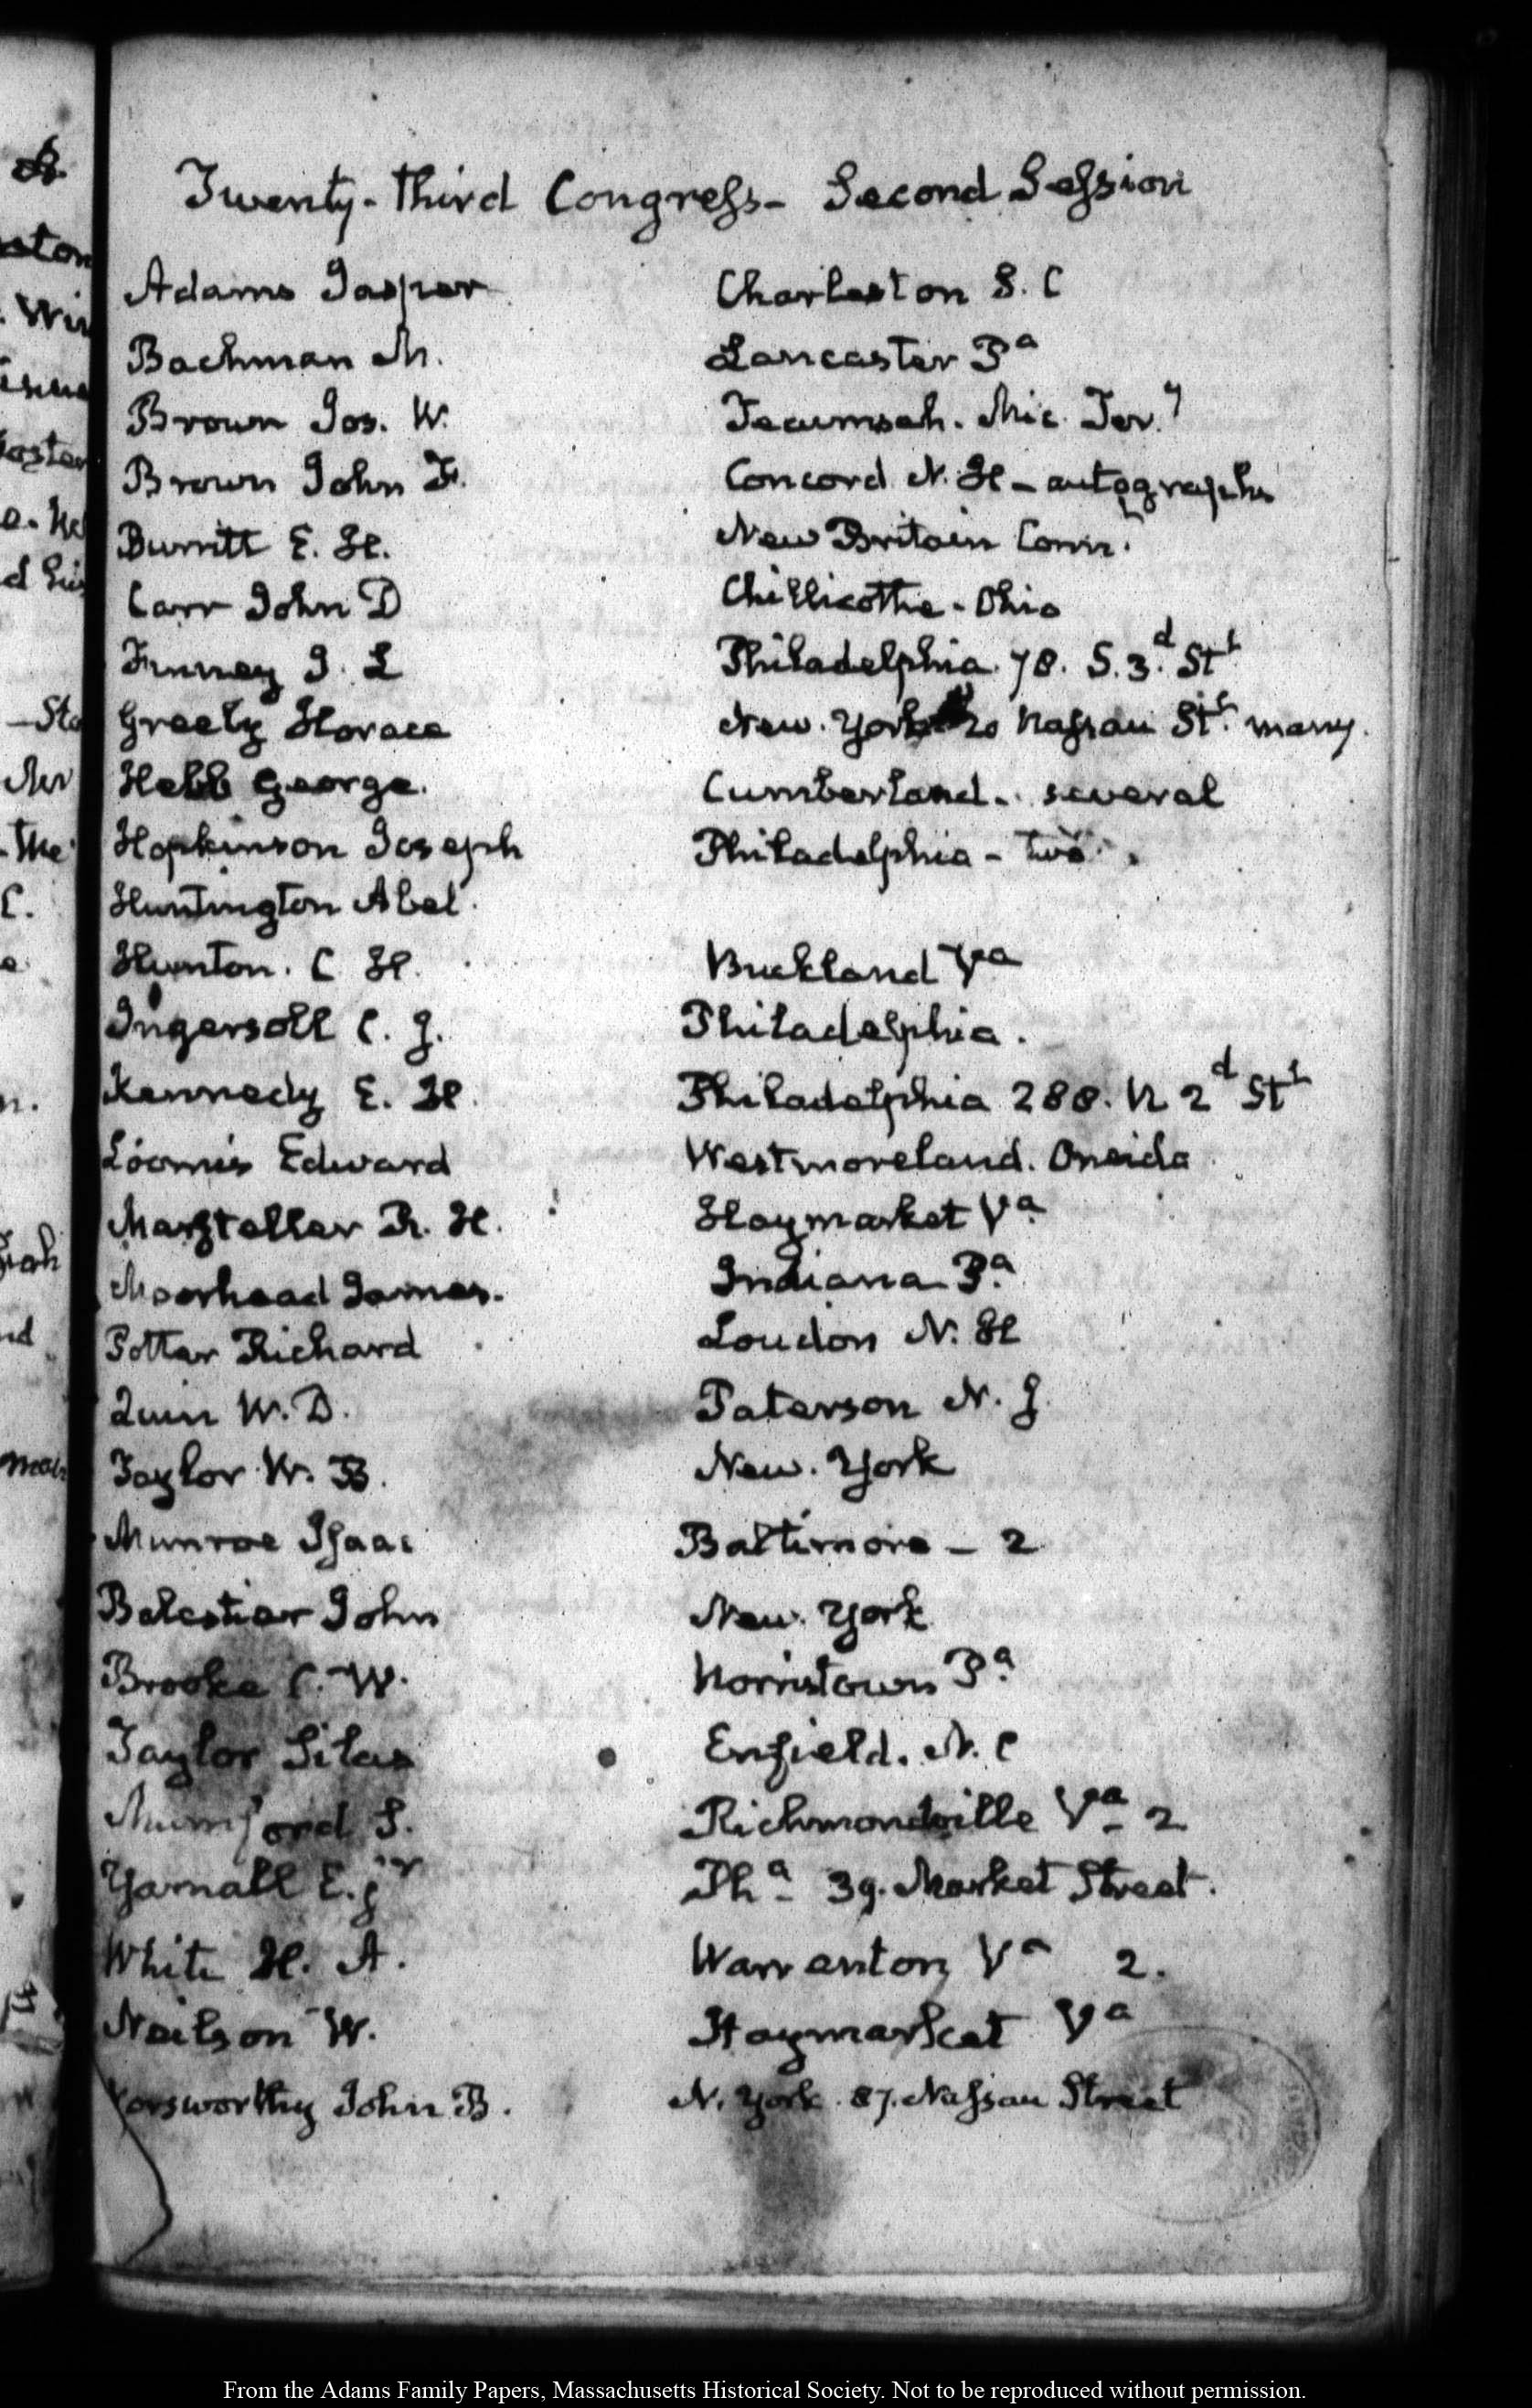 Twenty-third Congress - Second Session
Adams Jasper Charleston S. C
Bachman M. Lancaster Pa
Brown Jos. W. Tecumseh. Mic. Tery
Brown John F. Concord N. H - autographs
Burritt E. H. New Britain Conn.
Carr John D Chillicothe - Ohio
Finney J. L Philadelphia 78. S. 3.d Stt
Greely Horace New-York 20 Nassau Stt. many.
Hebb George. Cumberland. several
Hopkinson Joseph Philadelphia - two.
Huntington Abel.
Hunton. C H. Buckland Va
Ingersoll C. J. Philadelphia.
Kennedy E. H. Philadelphia 288. N 2d Stt
Loomis Edward Westmoreland. Oneida
Marsteller R. H. Haymarket Va
Moorhead James. Indiana Pa
Potter Richard Loudon N. H
Quin W. D. Paterson N. J.
Taylor W. B. New-York
Munroe Isaac Baltimore - 2
Balestier John New-York
Brooke C. W. Norristown Pa
Taylor Silas Enfield. N. C
Mumford S. Richmondville Va - 2
Yarnall E. jr Pha - 39. Market Street.
White H. A. Warranton Va 2.
Neilson W. Haymarket Va
John B. N. York. 87. Nassau Street
From the Adams Family Papers, Massachusetts Historical Society. Not to be reproduced without permission.